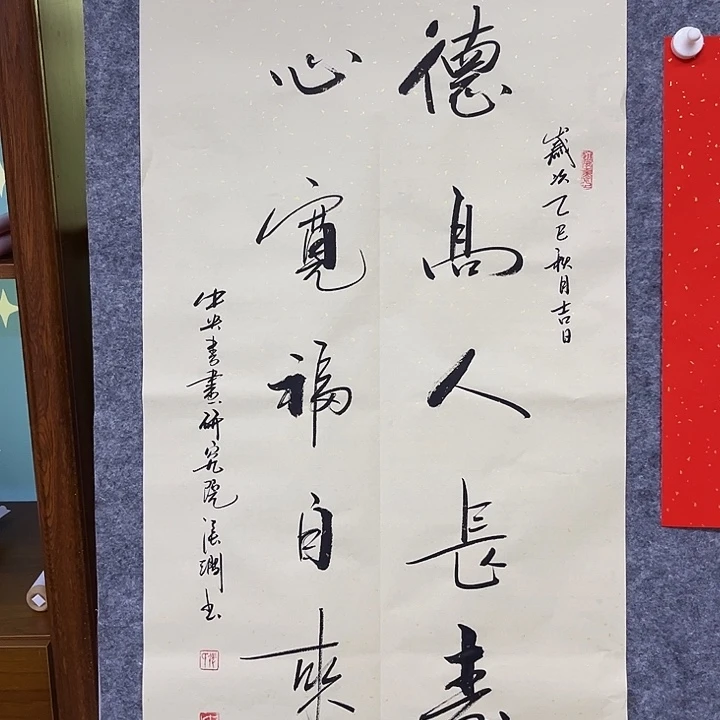 歲次乙巳秋月吉日
德高人長壽
心寬福自來
中央書畫研究院張澗書